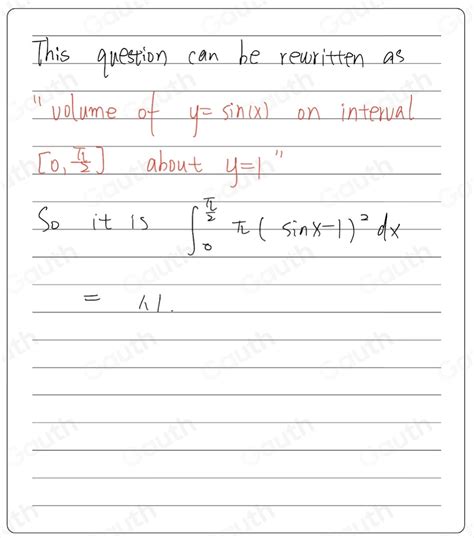 This question can be rewritten as
"volume of y=sin(x) on interval
[0, π/2] about y=1"
So it is ∫₀^(π/2) π(sinx-1)² dx
=